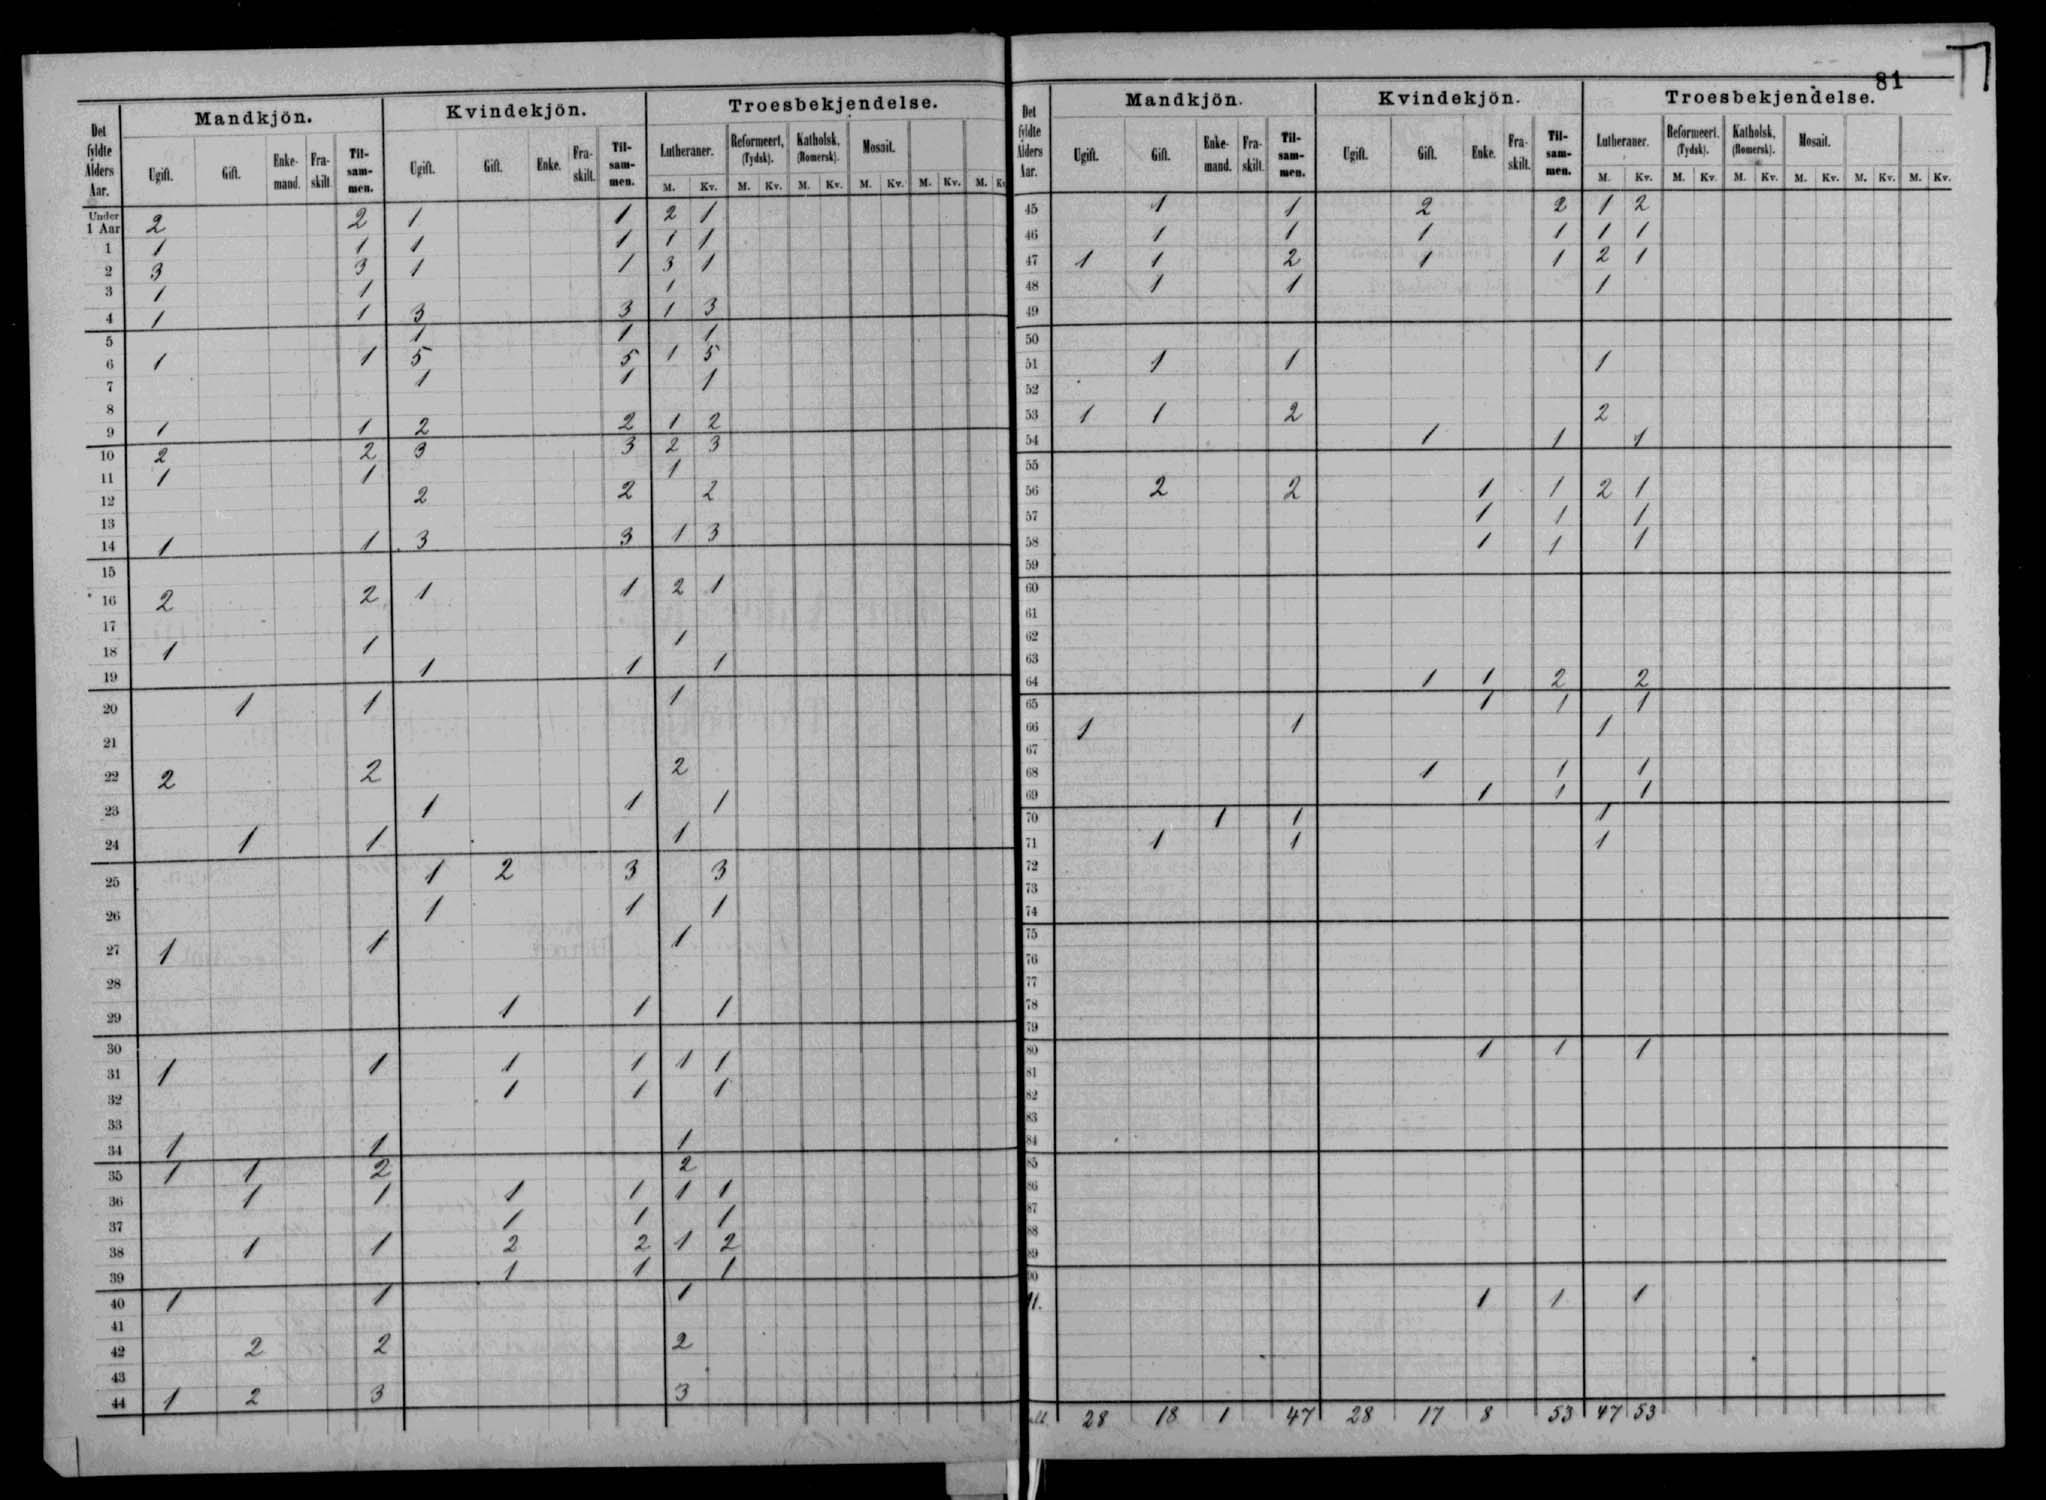 81
Mandkjön. Kvindekjön. Troesbekjendelse.
Det fyldte Alders Aar. Ugift. Gift. Enkemand. Fraskilt. Tilsammen. Ugift. Gift. Enke. Fraskilt. Tilsammen. Lutheraner. Reformeert, (Tydsk). Katholsk, (Romersk). Mosait.
M. Kv. M. Kv. M. Kv. M. Kv. M. Kv. M. Kv
Under 1 Aar 2 2 1 1 2 1
1 1 1 1 1 1 1
2 3 3 1 1 3 1
3 1 1 1
4 1 1 3 3 1 3
5 1 1 1
6 1 1 5 5 1 5
7 1 1 1
8
9 1 1 2 2 1 2
10 2 2 3 3 2 3
11 1 1 1
12 2 2 2
13
14 1 1 3 3 1 3
15
16 2 2 1 1 2 1
17
18 1 1 1
19 1 1 1
20 1 1 1
21
22 2 2 2
23 1 1 1
24 1 1 1
25 1 2 3 3
26 1 1 1
27 1 1 1
28
29 1 1 1
30
31 1 1 1 1 1 1
32 1 1 1
33
34 1 1 1
35 1 1 2 2
36 1 1 1 1 1 1
37 1 1 1
38 1 1 2 2 1 2
39 1 1 1
40 1 1 1
41
42 2 2 2
43
44 1 2 3 3
Mandkjön. Kvindekjön. Troesbekjendelse.
Det fyldte Alders Aar. Ugift. Gift. Enkemand. Fraskilt. Tilsammen. Ugift. Gift. Enke. Fraskilt. Tilsammen. Lutheraner. Reformeert. (Tydsk). Katholsk, (Romersk). Mosait.
M. Kv. M. Kv. M. Kv. M. Kv. M. Kv. M. Kv.
45 1 1 2 2 1 2
46 1 1 1 1 1 1
47 1 1 2 1 1 2 1
48 1 1 1
49
50
51 1 1 1
52
53 1 1 2 2
54 1 1 1
55
56 2 2 1 1 2 1
57 1 1 1
58 1 1 1
59
60
61
62
63
64 1 1 2 2
65 1 1 1
66 1 1 1
67
68 1 1 1
69 1 1 1
70 1 1 1
71 1 1 1
72
73
74
75
76
77
78
79
80 1 1 1
81
82
83
84
85
86
87
88
89
90
91. 1 1 1
28 18 1 47 28 17 8 53 47 53